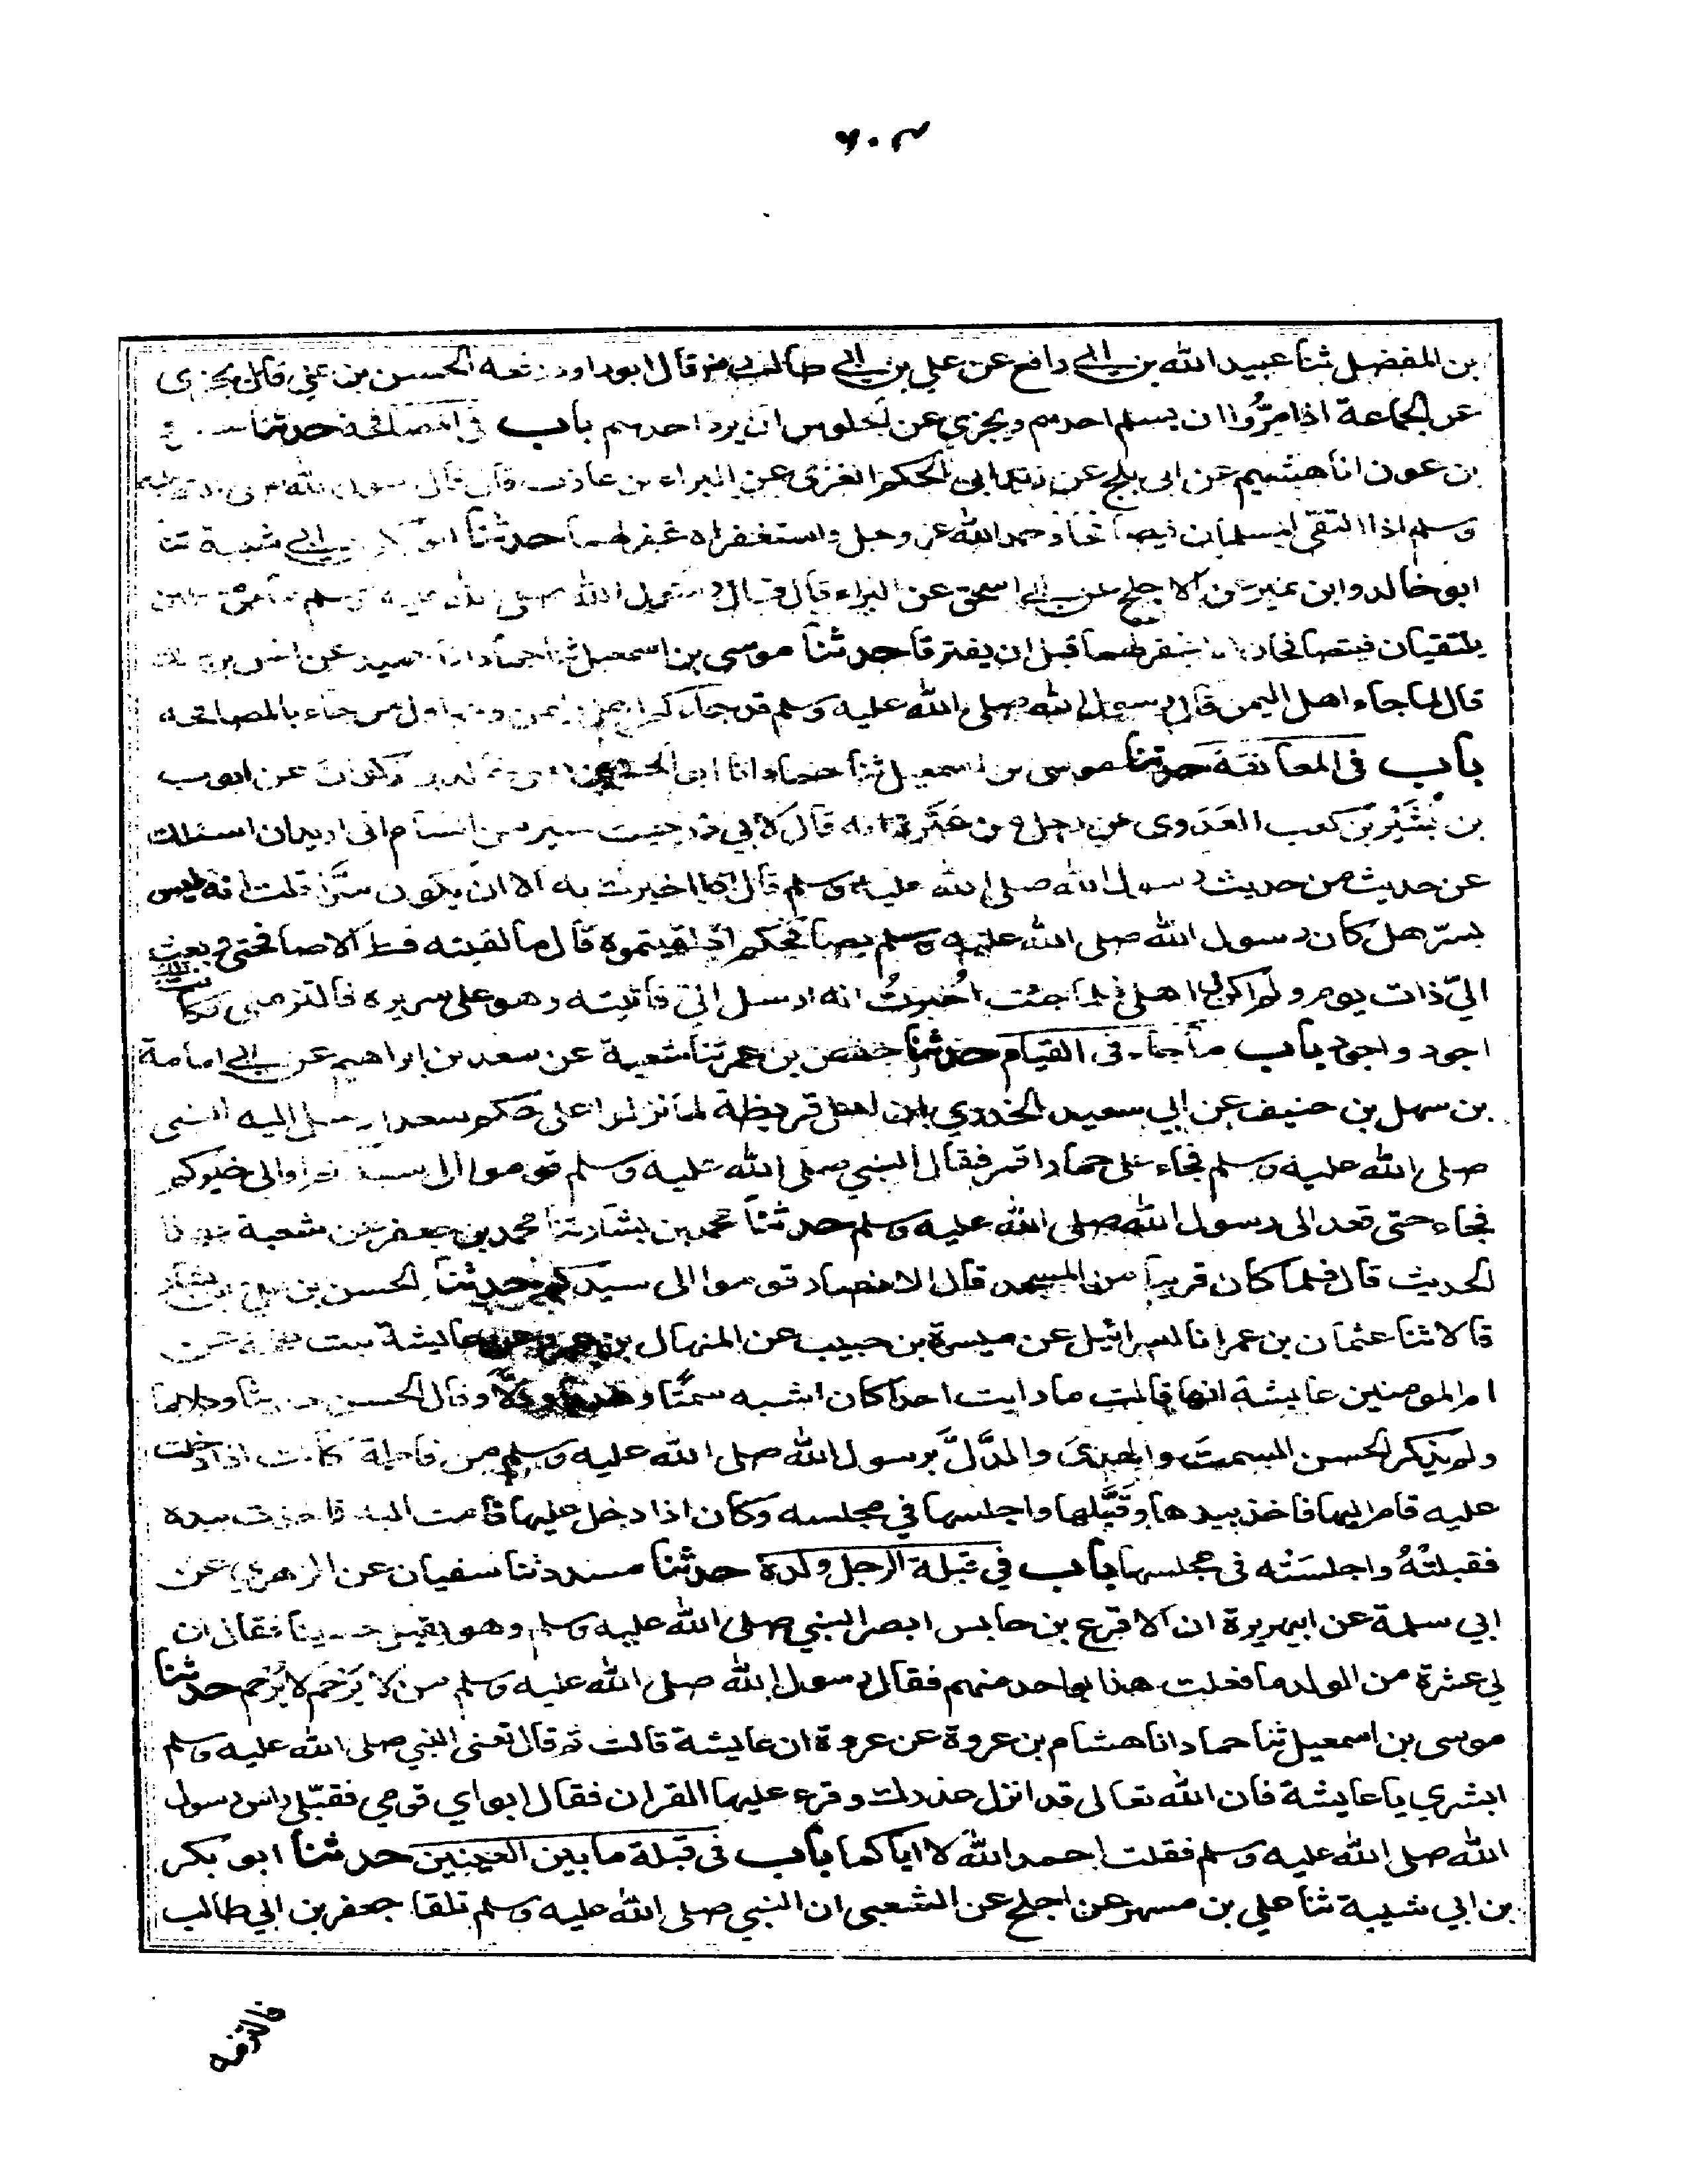 بن المفضل ثنا عبيد الله بن ابي رافع عن علي بن ابي طالب رض قال ابو داود رفعه الحسن بن علي قال يجزى
عن الجماعة اذا مرّوا ان يسلم احدهم ويجزي عن الجلوس ان يرد احدهم باب في المصافحة حدثنا
بن عون انا هشيم عن ابى بلج عن زيد ابى الحكم العنزى عن البراء بن عازب قال قال رسول الله صلى الله عليه
وسلم اذا التقى المسلمان فتصافحا وحمدا الله عز وجل واستغفراه غفر لهما حدثنا ابو بكر بن ابي شيبة ثنا
ابو خالد وابن نمير عن الاجلح عن ابي اسحق عن البراء قال قال رسول الله صلى الله عليه وسلم ما من
يلتقيان فيتصافحان الا غفر لهما قبل ان يفترقا حدثنا موسى بن اسمعيل ثنا حماد انا حميد عن انس بن مالك
قال لما جاء اهل اليمن قال رسول الله صلى الله عليه وسلم قد جاءكم اهل اليمن وهم اول من جاء بالمصافحه
باب فى المعانقة حدثنا موسى بن اسمعيل ثنا حماد انا ابو الحسين ذكوان عن ايوب
بن بُشَيْر بن كعب العَدَوى عن رجل من عَنَزة انه قال لابي ذر حيث سير من الشام انى اريد ان اسئلك
عن حديث من حديث رسول الله صلى الله عليه وسلم قال اذا اخبرك به الا ان يكون سرًّا قلت انه ليس
بسرّ هل كان رسول الله صلى الله عليه وسلم يصافحكم اذا لقيتموه قال ما لقيته قط الا صافحني وبعث
اليّ ذات يوم ولم اكن فى اهلى فلما جئت اُخبرتُ انه ارسل الىّ فاتيته وهو على سريره فالتزمنى فكانت تلك
اجود واجود باب ما جاء فى القيام حدثنا حفص بن عمر ثنا شعبة عن سعد بن ابراهيم عن ابي امامة
بن سهل بن حنيف عن ابي سعيد الخدري ان اهل قريظة لما نزلوا على حكم سعد ارسل اليه النبى
صلى الله عليه وسلم فجاء على حمار اقمر فقال النبي صلى الله عليه وسلم قوموا الى سيدكم او الى خيركم
فجاء حتى قعد الى رسول الله صلى الله عليه وسلم حدثنا محمد بن بشار ثنا محمد بن جعفر عن شعبة بهذا
الحديث قال فلما كان قريبا من المسجد قال للانصار قوموا الى سيدكم حدثنا الحسن بن علي وابن بشار
قالا ثنا عثمان بن عمر انا اسرائيل عن ميسرة بن حبيب عن المنهال بن عمرو عن عايشة بنت طلحة عن
ام المومنين عايشة انها قالت ما رايت احدا كان اشبه سمتًا وهديا ودلًّا وقال الحسن حديثا وكلاما
ولم يذكر الحسن السمتَ والهدىَ والدَّلَّ برسول الله صلى الله عليه وسلم من فاطمة كانت اذا دخلت
عليه قام اليها فاخذ بيدها وقبَّلها واجلسها في مجلسه وكان اذا دخل عليها قامت اليه فاخذت بيده
فقبلتْهُ واجلسَتْه فى مجلسها باب في قبلة الرجل ولده حدثنا مسدد ثنا سفيان عن الزهري عن
ابي سلمة عن ابي هريرة ان الاقرع بن حابس ابصر النبي صلى الله عليه وسلم وهو يقبل حسينا فقال ان
لي عشرة من الولد ما فعلت هذا بواحد منهم فقال رسول الله صلى الله عليه وسلم من لا يَرْحَم لا يُرْحَم حدثنا
موسى بن اسمعيل ثنا حماد انا هشام بن عروة عن عروة ان عايشة قالت ثم قال تعنى النبي صلى الله عليه وسلم
ابشري يا عايشة فان الله تعالى قد انزل عذرك وقرء عليها القران فقال ابواي قومي فقبّلي راس رسول
الله صلى الله عليه وسلم فقلت احمد الله لا اياكما باب فى قبلة ما بين العينين حدثنا ابو بكر
بن ابي شيبة ثنا علي بن مسهر عن اجلح عن الشعبى ان النبي صلى الله عليه وسلم تلقا جعفر بن ابي طالب
فالتزمه